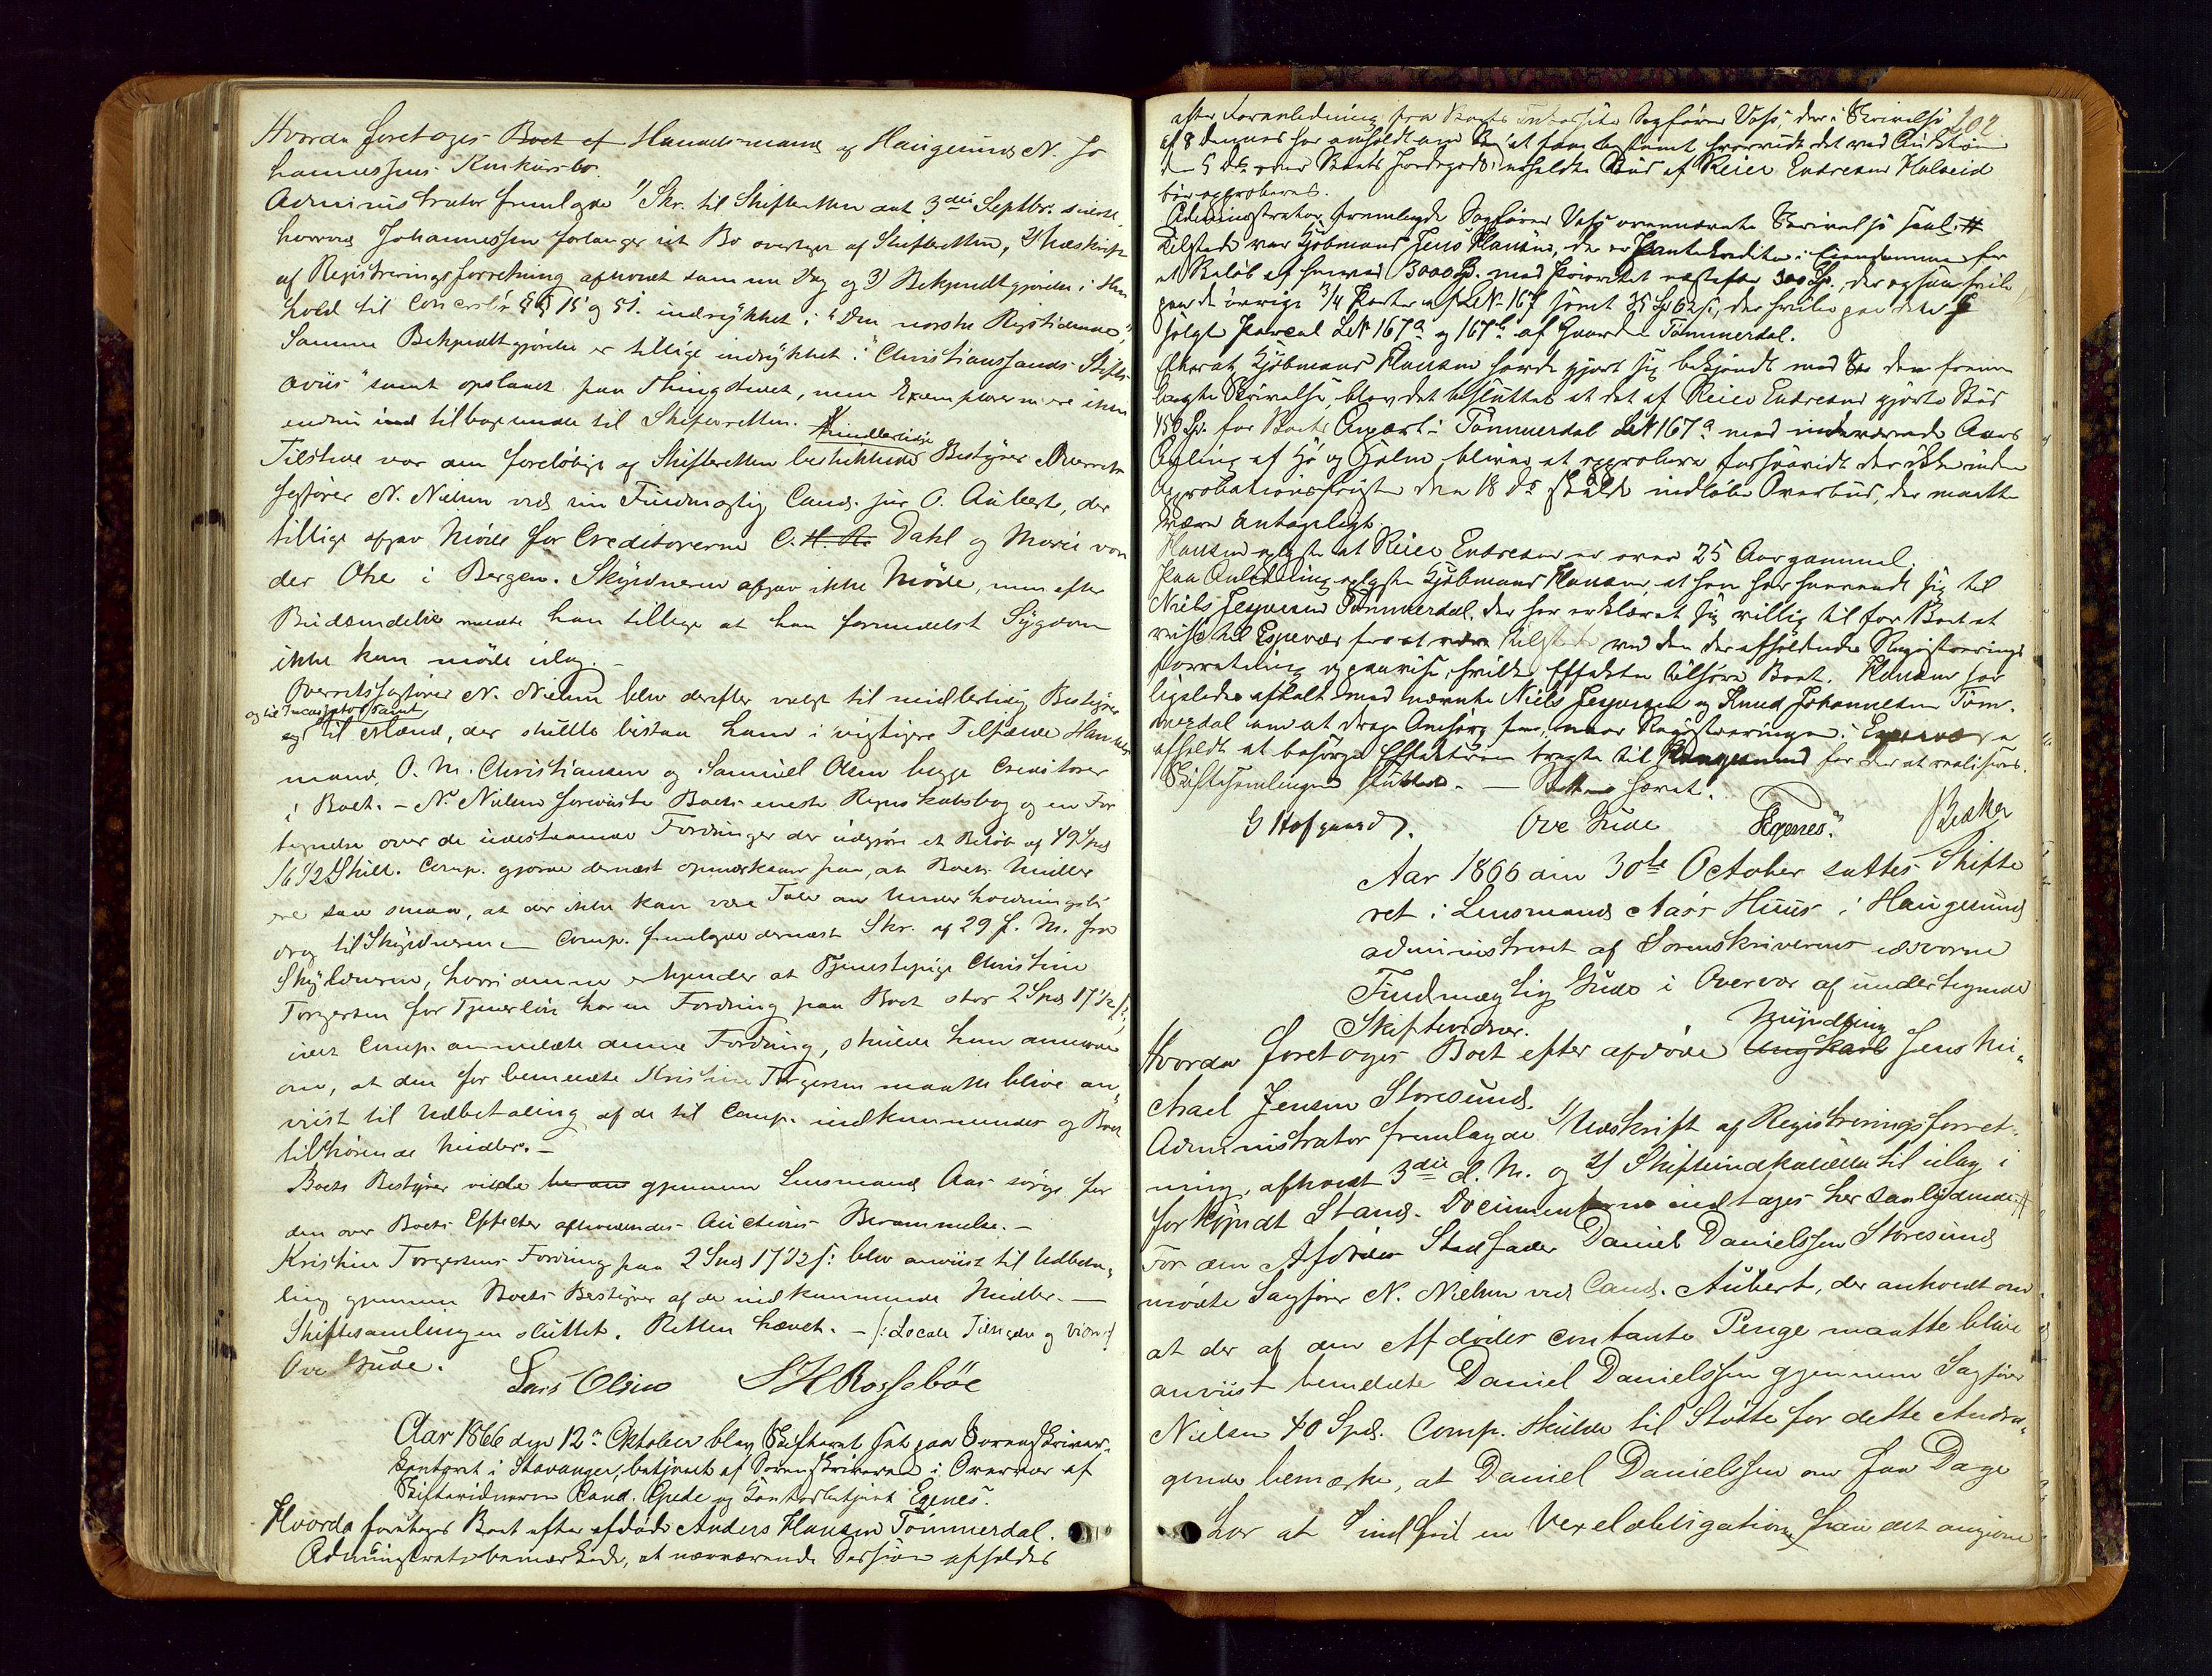 Hvorda foretoges Boet af Handelsmand af Haugesund N. Jo
hannessens Konkursbo.
Administrator fremlagde 1/ Skr. til Skifteretten dat 3die Septbr. sidste,
hvorved Johannessen forlanger sit Bo overtaget af Skifteretten, 2/ Udskrift
af Registreringsforretning afholdt samme Dag og 3/ Bekjendtgjørelse i Hen
hold til §§ 15 og 51. indrykket i "Den norske Rigstidende",
Samme Bekjendtgjørelse er tillige indrykket i "Christianssands Stifts
avis" samt opslaaet paa Thingstedet, men Exemplarerne ere ikke
endnu tilbagesendte til Skifteretten.
Tilstede var den foreløbige af Skifteretten beskikkede midlertidige Bestyrer Overrets
sagfører N. Nielsen ved sin Fuldmægtig Cand. jur O. Aubert, der
tillige afgav Møde for Creditorerne C. H. R. Dahl og Marie von
der Ohe i Bergen. Skyldneren afgav ikke Møde, men efter
Budsendelse meldte han tillige at han formedelst Sygdom
ikke kan møde idag. –
Overretssagfører N. Nielsen blev derefter valgt til midlertidig Bestyrer
og til Incassator samt
til Mænd, der skulle bistaa ham i vigtigere Tilfælde Handels
mand O. M. Christiansen og Samuel Olsen begge Creditorer
i Boet. – N. Nielsen foreviste Boets eneste Regnskabsbog og en For
tegnelse over de udestaaende Fordringer der udgjøre et Beløb af 49 Spd
16 1/2 Skill. Comp. gjorde dernæst opmærksom paa, at Boets Midler
ere saa smaa, at der ikke kan være Tale om Underholdningsbi
drag til Skyldneren – Comp. fremlagde dernæst Skr. af 29 f. M. fra
Skyldneren, hvori denne erkjender at Tjenestepige Christine
Torgersen for Tjenerløn har en Fordring paa Boet stor 2 Spd 17 1/2 s:,
idet Comp. anmeldte denne Fordring, skulde han anmode
om, at den for bemeldte Kristine Torgersen maatte blive an
viist til Udbetaling af de til Comp. indkommende og Boet
tilhørende Midler. –
Boets Bestyrer vilde gjennem Lensmand Aas sørge for
den over Boets Effecter afholdendes Auctions Berammelse. –
Kristine Torgersens Fordring paa 2 Spd 17 1/2 s: blev anviist til Udbeta
ling gjennem Boets Bestyrer af de indkommende Midler. –
Skiftesamlingen sluttet. Retten hævet. –
Ove Gude. Lars Olsen S H Rossebøe
Aar 1866 den 12te Oktober blev Skifteret sat paa Sorenskriver
kontoret i Stavanger, betjent af Sorenskriveren i Overvær af
Skiftevidnerne Cand. Gude og Kontorbetjent Egenes.
Hvorda foretoges Boet efter afdøde Anders Hansen Tømmerdal.
Administrator bemærkede, at nærværende Session afholdes
202
efter Foranledning fra Boets Sagfører Voss, der i Skrivelse
af 8 dennes har anholdt om at faae bestemt hvorvidt det ved Auktion
den 5 ds over Boets Jordegods indholdte Bud af Reier Endresen Halseid
bør approberes.
Administrator fremlagde Sagfører Voss ovennævnte Skrivelse #
Tilstede var Kjøbmand Jens Hansen, der er Pantekreditor i Eiendommen for
et Beløb af 3000 Spd. med Prioritet næstefter 300 Sp., der ogsaa hvile
paa de øvrige 3/4 Parter af L.N. 167
solgte Parcel L.N. 167a og 167b af Gaarden Tømmerdal.
Efterat Kjøbmand Hansen havde gjort sig bekjendt med den frem
lagte Skrivelse, blev det besluttet at det af Reier Endresen gjorte Bud
450 Sp. for Boets Anpart i Tømmerdal L.N. 167a med indeværende Aars
Avling af Hø og Halm bliver at approbere forsaavidt der ikke inden
Approbationsfristen den 18 ds skulde indløbe Overbud, der maatte
være antageligt.
Hansen oplyste at Reier Endresen er over 25 Aar gammel.
Paa Anledning oplyste Kjøbmand Hansen, at han har henvendt sig til
Niels Jespersen Tømmerdal, der har erklæret sig villig til for Boet at
reise til Espevær for at være tilstede ved den der afholdende Registrerings
forretning og paavise, hvilke Effekter tilhøre Boet. Hansen har
ligeledes aftalt med nævnte Niels Jespersen og Knud Johannesen Tøm
merdal om at drage Omsorg for, naar Registreringen i Espevær er
afholdt at besørge Effekterne bragte til Haugesund for der at realiseres.
Skiftesamlingen sluttet. – Retten hævet.
G Hofgaard. Ove Gude Egenes.
Aar 1866 den 30te October sattes Skifte
ret i Lensmand Aas's Huus i Haugesund
administreret af Sorenskriverens edsvorne
Fuldmægtig Gude i Overvær af undertegnede
Skiftevidner.
Hvorda foretoges Boet efter afdøde Ungkarl Myndling Jens Mi
chael Jensen Storesund.
Administrator fremlagde 1/ Udskrift af Registreringsforret
ning, afholdt 3die d. M. og 2/ Skifteindkaldelse til idag i
forkyndt Stand. Documenterne indtages her saalydende #
For den Afdødes Stedfader Daniel Danielssen Storesund
mødte Sagfører N. Nielsen ved Cand. Aubert, der anholdt om
at der af den Afdødes contante Penge maatte blive
anviist bemeldte Daniel Danielssen gjennem Sagfører
Nielsen 40 Spd. Comp. skulde til Støtte for dette Andra
gende bemærke, at Daniel Danielssen om faa Dage
har at indfri en Vexelobligation paa det angivne